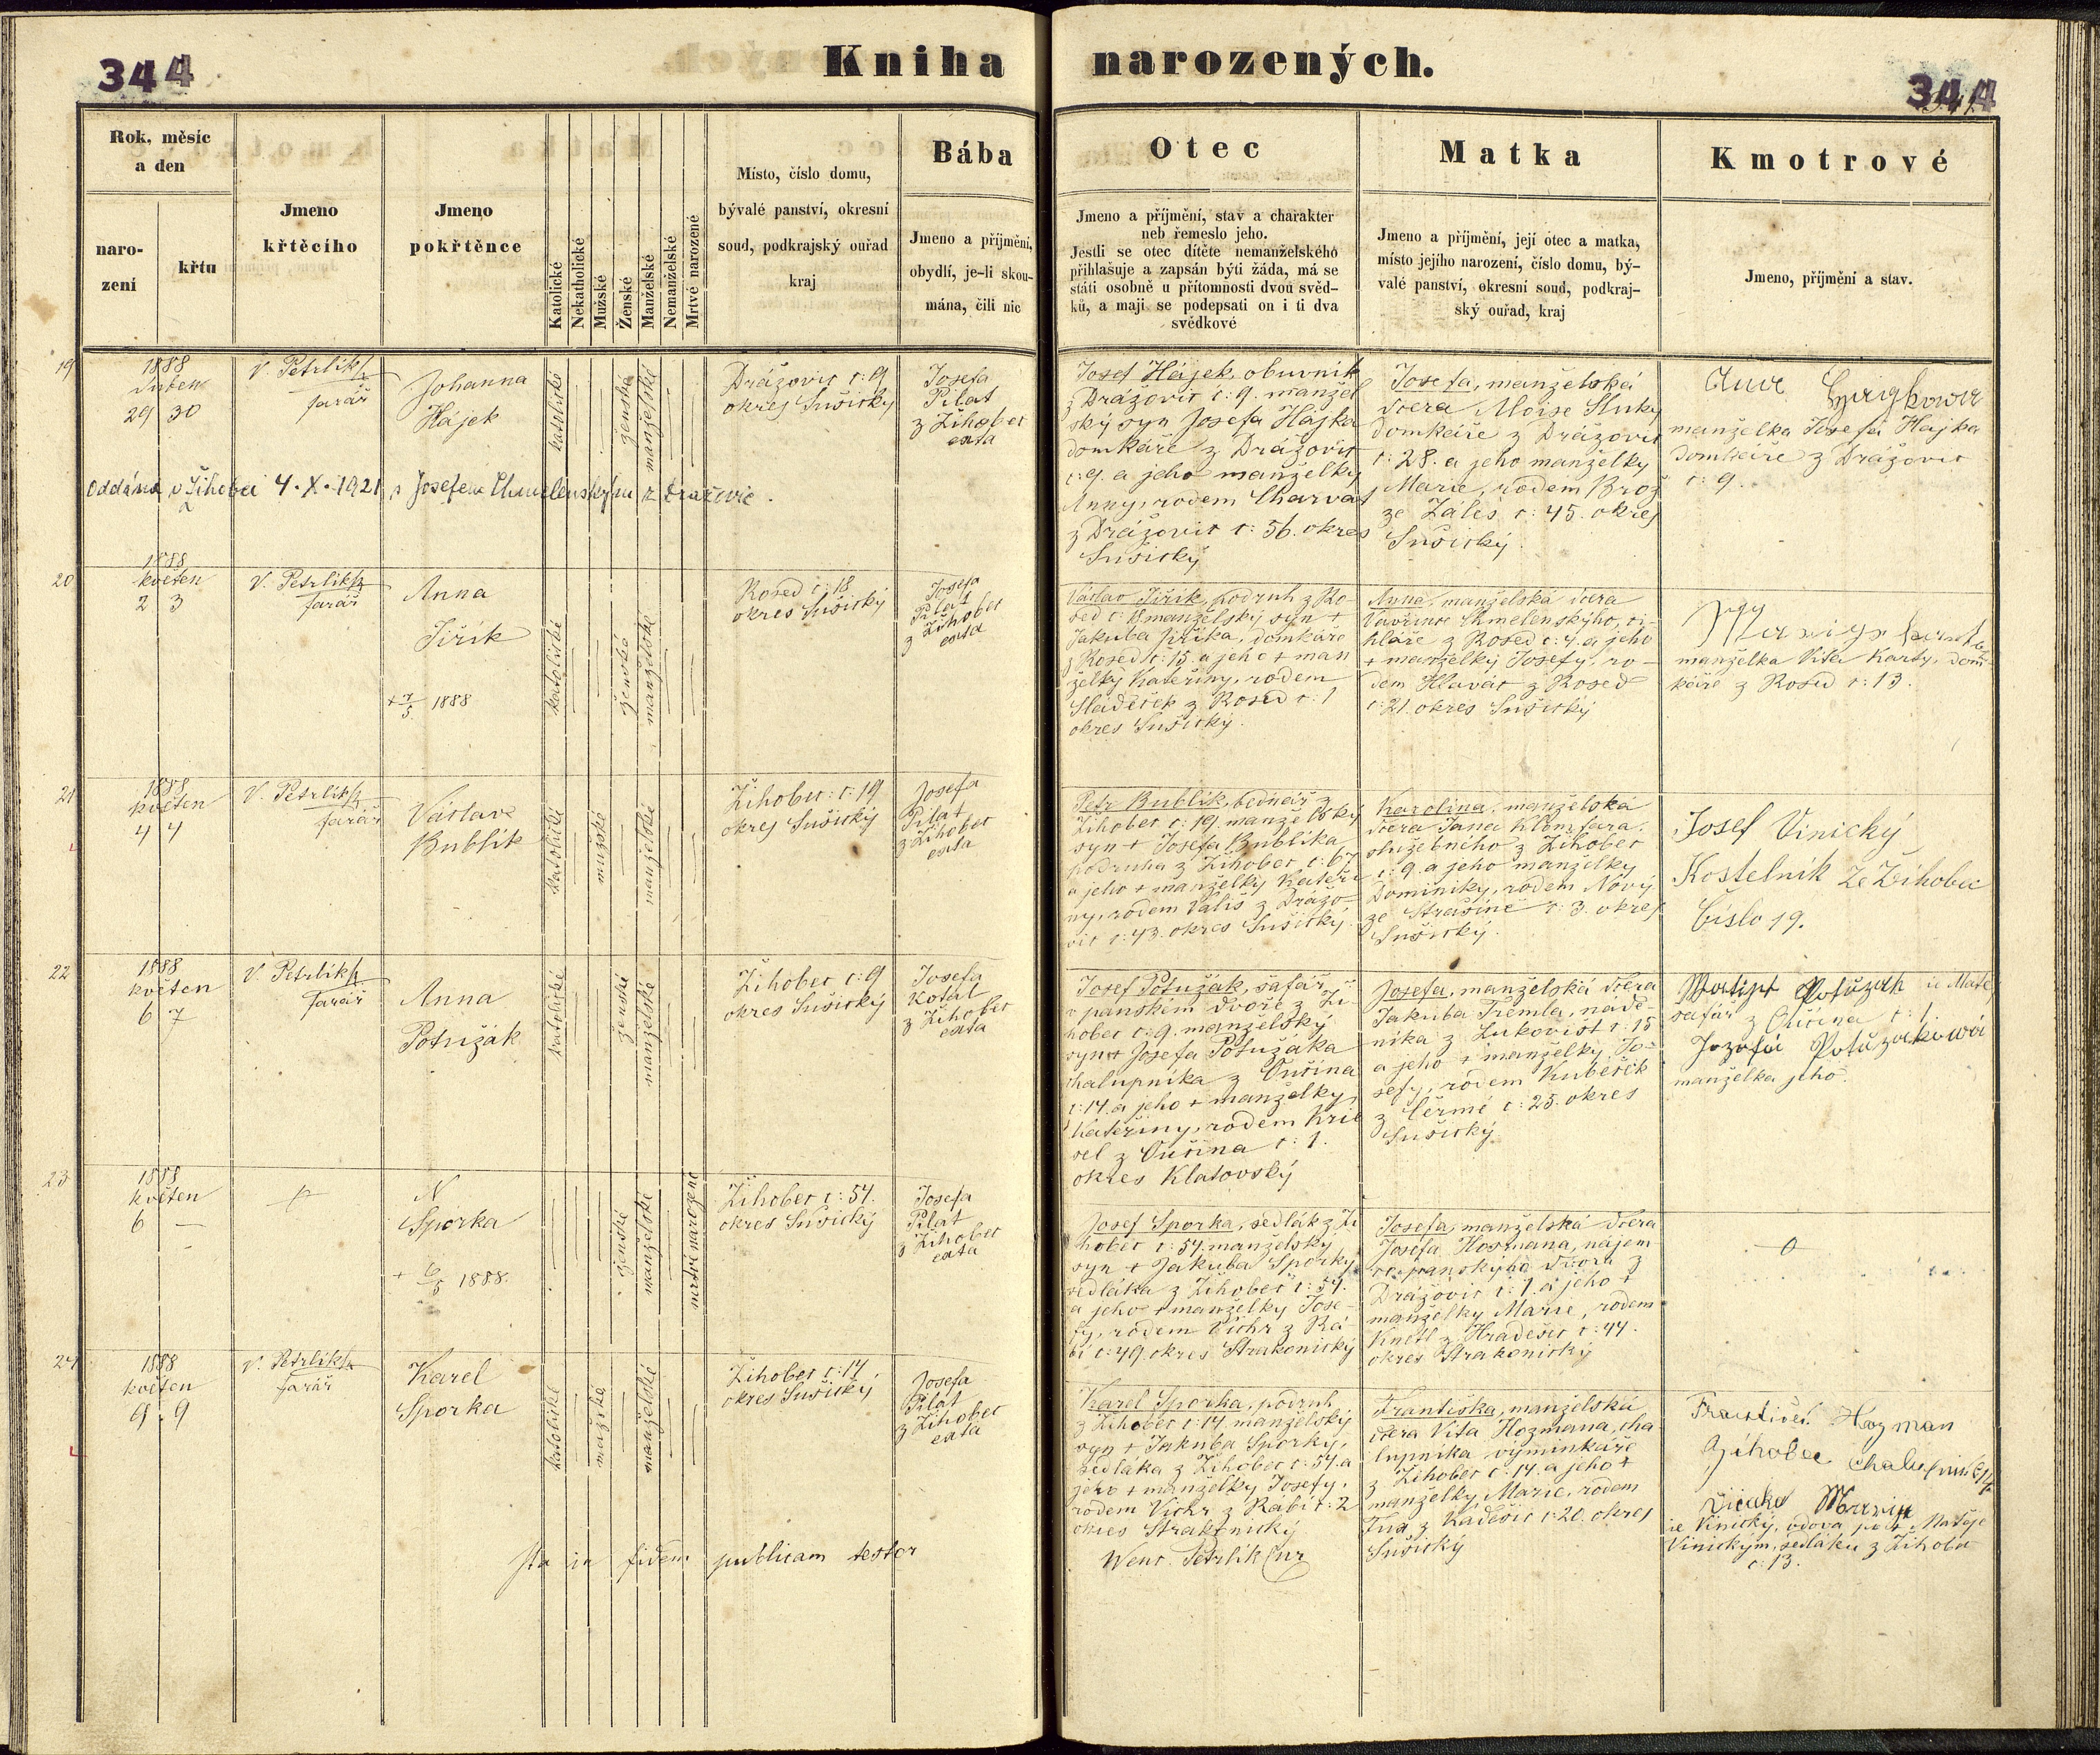 344
Kniha narozených.
344
Rok, měsíc
a den
naro-
zení
křtu
Jmeno
křtěcího
Jmeno
pokřtěnce
Katolické
Nekatholické
Mužské
Ženské
Manželské
Nemanželské
Mrtvě narozené
Místo, číslo domu,
bývalé panství, okresní
soud, podkrajský ouřad
kraj
Bába
Jmeno a příjmění,
obydlí, je-li skou-
mána, čili nic
Otec
Jmeno a příjmění, stav a charakter
neb řemeslo jeho.
Jestli se otec dítěte nemanželského
přihlašuje a zapsán býti žáda, má se
státi osobně u přítomnosti dvou svěd-
ků, a mají se podepsati on i ti dva
svědkové
Matka
Jmeno a příjmění, její otec a matka,
místo jejího narození, číslo domu, bý-
valé panství, okresní soud, podkraj-
ský ouřad, kraj
Kmotrové
Jmeno, příjmění a stav.
19
1888
Duben
29 30
V. Petrlík
farář
Johanna
Hájek
katolické
ženské
manželské
Drážovic č: 9
okres Sušický
Josefa
Pilat
z Žihobec
exta
Josef Hájek, obuvník
z Drážovic č: 9. manžel
ský syn Josefa Hájka
domkáře z Drážovic
č: 9. a jeho manželky
Anny, rodem Charvat
z Drážovic č: 56. okres
Sušický
Josefa, manželská
dcera Aloise Sluky
domkáře z Drážovic
č: 28. a jeho manželky
Marie, rodem Brož
ze Záleś č: 45. okres
Sušický.
manželka Josefa Hájka
domkáře z Drážovic
č: 9.
Oddána v Žihobci 4. X. 1921 s Josefem Chmelenským z Dražovic.
20
1888
květen
2 3
V. Petrlík
farář
Anna
Jiřík
+ 7/5 1888
katolické
ženské
manželské
Rosed č: 18.
okres Sušický
Josefa
Pilat
z Žihobec
exta
Václav Jiřík, podruh z Ro-
sed č: 18 manželský syn +
Jakuba Jiříka, domkáře
z Rosed č: 15. a jeho + man
želky Kateřiny, rodem
Sládeček z Rosed č: 1
okres Sušický.
Anna, manželská dcera
Vavřince Chmelenskýho, ci-
hláře z Rosed č: 4. a jeho
+ manželky Josefy, ro-
dem Hlaváč z Rosed
č: 21. okres Sušický
manželka Víta Karty, dom-
káře z Rosed č: 13.
21
1888
květen
4 4
V. Petrlík
farář
Václav
Bublík
katolické
mužské
manželské
Žihobec č: 19
okres Sušický
Josefa
Pilat
z Žihobec
exta
Petr Bublík, bednář z
Žihobec č: 19 manželský
syn + Josefa Bublíka
podruha z Žihobec č: 67
a jeho + manželky Kateři
ny, rodem Vališ z Drážo-
vic č: 43. okres Sušický.
Karolina, manželská
dcera Jana Klomfara
služebného z Žihobec
č: 9. a jeho manželky
Dominiky, rodem Nový
ze Strašíně č: 3. okres
Sušický.
Josef Vinický
Kostelník ze Žihobec
číslo 19.
22
1888
květen
6 7
V. Petrlík
farář
Anna
Potužák
katolické
ženské
manželské
Žihobec č: 9
okres Sušický
Josefa
Kotál
z Žihobec
exta
Josef Potužák, šafář
v panském dvoře z Ži-
hobec č: 9. manželský
syn + Josefa Potužáka
chalupníka z Ouřina
č: 14. a jeho + manželky
Kateřiny, rodem Krie
sel z Ouřina č: 1.
okres Klatovský
Josefa, manželská dcera
Jakuba Tremla, náde-
níka z Lukovišť č: 15
a jeho + manželky Jo-
sefy, rodem Kubeček
z Čermé č: 25. okres
Sušický
šafář z Ouřina č: 1.
Jozefa Potužakowá
manželka jeho.
23
1888
květen
6 —
N
Sporka
+ 6/5 1888.
ženské
manželské
mrtvě narozené
Žihobec č: 54.
okres Sušický
Josefa
Pilat
z Žihobec
exta
Josef Sporka, sedlák z Ži
hobec č: 54. manželský
syn + Jakuba Sporky,
sedláka z Žihobec č: 54.
a jeho + manželky Jose-
fy, rodem Vichr z Rá-
bí č: 49. okres Strakonický
Josefa, manželská dcera
Josefa Hosmana, nájem-
ce panskýho dvora z
Drážovic č: 1. a jeho +
manželky Marie, rodem
Knetl z Hradešic č: 44.
okres Strakonický
24
1888
květen
9. 9
V. Petrlík
farář
Karel
Sporka
katolické
mužské
manželské
Žihobec č: 14
okres Sušický
Josefa
Pilat
z Žihobec
exta
Karel Sporka, podruh
z Žihobec č: 14. manželský
syn + Jakuba Sporky,
sedláka z Žihobec č: 54. a
jeho + manželky Josefy,
rodem Vichr z Rábí č: 2
okres Strakonický
Františka, manželská
dcera Víta Hozmana, cha
lupníka výminkáře
z Žihobec č: 14. a jeho +
manželky Marie, rodem
Fux z Kadešic č: 20. okres
Sušický
František Hozman
Žihobec chalupník 14
ie Vinický, vdova po + Matěje
Vinickým, sedláku z Žihobec
č: 13.
Ita in fidem publicam testor
Wenc. Petrlík Cur